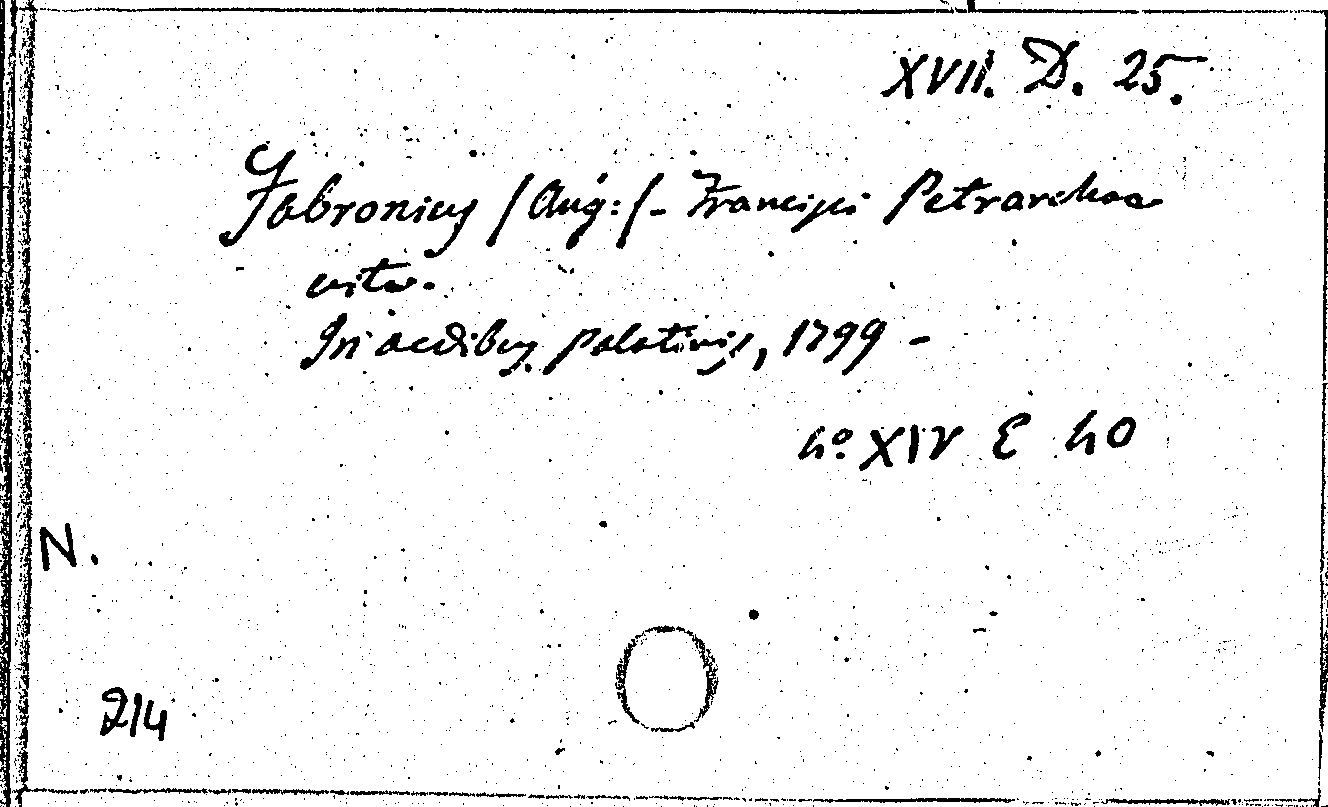 XVII. D. 25.
Fabronius /Aug:/ - Francisci Petrarchae
vita.
In aedibus Palatinis, 1799 -
4° XIV E 40
N.
214